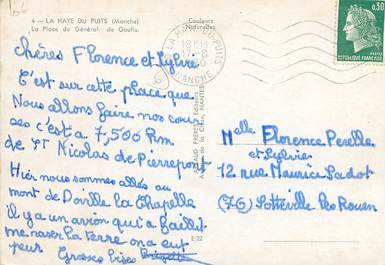 4 - LA HAYE DU PUITS (Manche)
La Place du Général de Gaulle.
Couleurs
Naturelles
chères Florence et Sylvie
C'est sur cette place que
Nous allons faire nos cour
ses c'est à 7,500 Km
de St Nicolas de Pierrepont
Hier nous sommes allés au
mont de Doville la Chapelle
il y a un avion qui a failli
me raser la terre on a eut
peur Grosses bises
E.22
LA HAYE-DU-PUITS
18 H
MANCHE
0,30
REPUBLIQUE FRANÇAISE
POSTES
Melle Florence Perelle
et Sylvie
12 rue Maurice Sadot
(76) Sotteville les Rouen